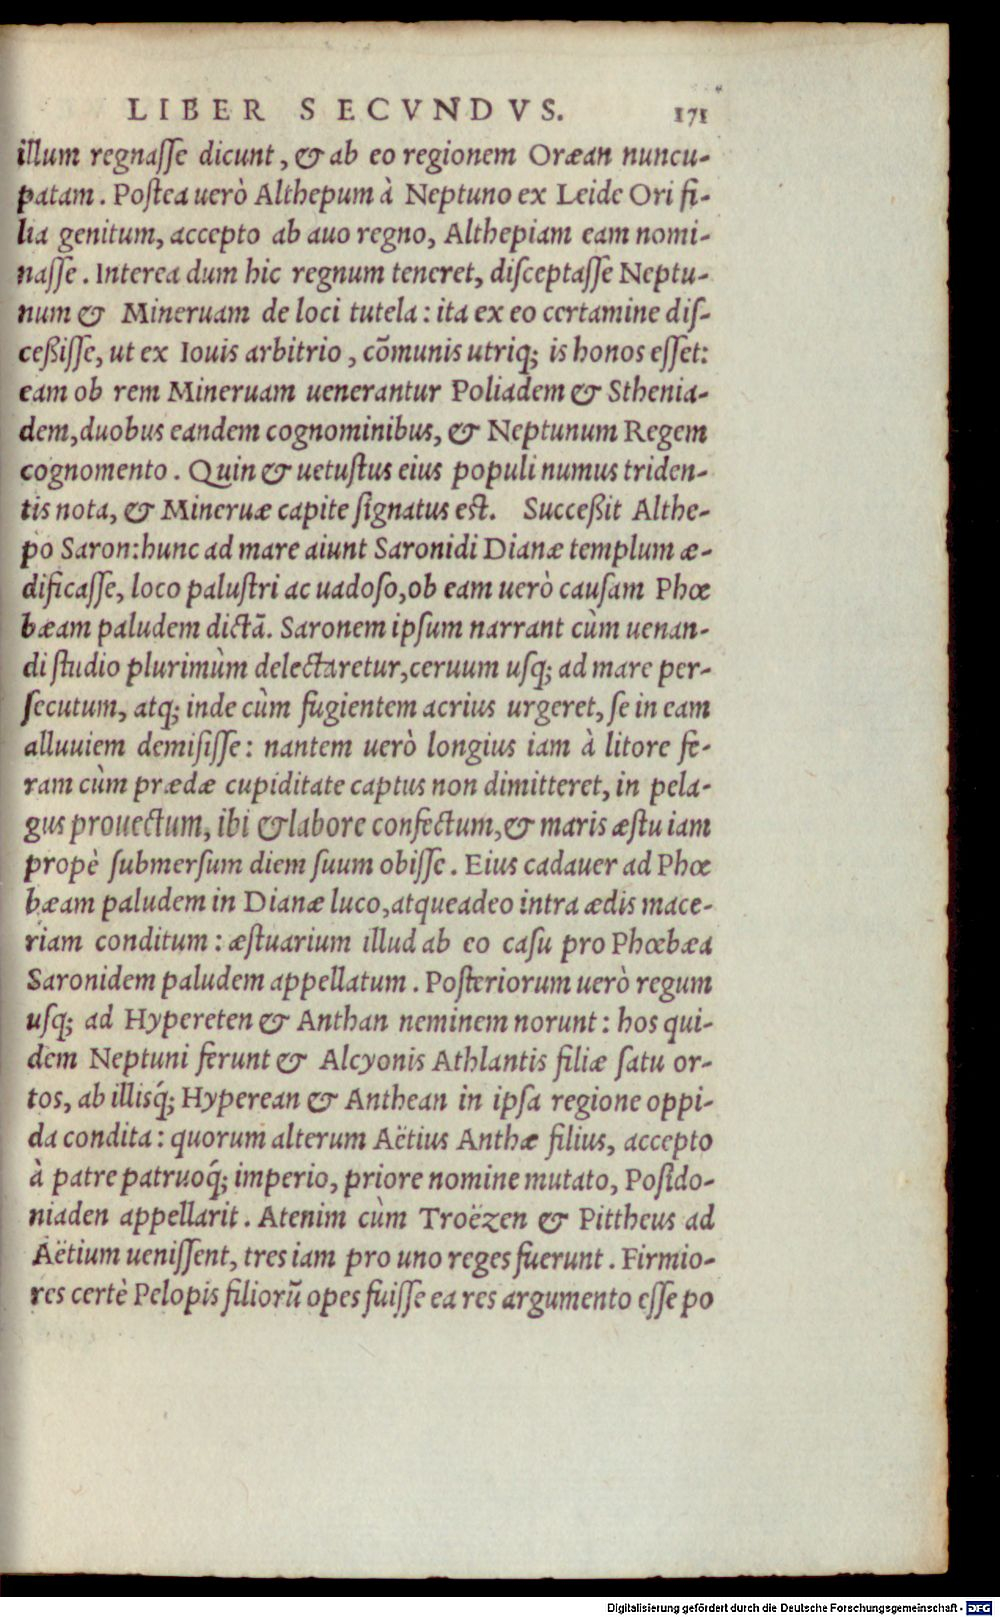 LIBER SECVNDVS. 171
illum regnaſſe dicunt, & ab eo regionem Oræan nuncu-
patam. Poſtea uerò Althepum à Neptuno ex Leide Ori fi-
lia genitum, accepto ab auo regno, Althepiam eam nomi-
naſſe. Interea dum hic regnum teneret, diſceptaſſe Neptu-
num & Mineruam de loci tutela: ita ex eo certamine diſ-
ceßiſſe, ut ex Iouis arbitrio, cõmunis utriq; is honos eſſet:
eam ob rem Mineruam uenerantur Poliadem & Sthenia-
dem, duobus eandem cognominibus, & Neptunum Regem
cognomento. Quin & uetuſtus eius populi numus triden-
tis nota, & Mineruæ capite ſignatus est. Succeßit Althe-
po Saron: hunc ad mare aiunt Saronidi Dianæ templum æ-
dificaſſe, loco paluſtri ac uadoſo, ob eam uerò cauſam Phœ
bæam paludem dictã. Saronem ipſum narrant cùm uenan-
di ſtudio plurimùm delectaretur, ceruum uſq; ad mare per-
ſecutum, atq; inde cùm fugientem acrius urgeret, ſe in eam
alluuiem demiſiſſe: nantem uerò longius iam à litore fe-
ram cùm prædæ cupiditate captus non dimitteret, in pela-
gus prouectum, ibi & labore confectum, & maris æſtu iam
propè ſubmerſum diem ſuum obiſſe. Eius cadauer ad Phœ
bæam paludem in Dianæ luco, atque adeo intra ædis mace-
riam conditum: æſtuarium illud ab eo caſu pro Phœbæa
Saronidem paludem appellatum. Poſteriorum uerò regum
uſq; ad Hypereten & Anthan neminem norunt: hos qui-
dem Neptuni ferunt & Alcyonis Athlantis filiæ ſatu or-
tos, ab illisq́; Hyperean & Anthean in ipſa regione oppi-
da condita: quorum alterum Aëtius Anthæ filius, accepto
à patre patruoq́; imperio, priore nomine mutato, Poſido-
niaden appellarit. Atenim cùm Troëzen & Pittheus ad
Aëtium ueniſſent, tres iam pro uno reges fuerunt. Firmio-
res certè Pelopis filiorũ opes fuiſſe ea res argumento eſſe po
Digitalisierung gefördert durch die Deutsche Forschungsgemeinschaft - DFG